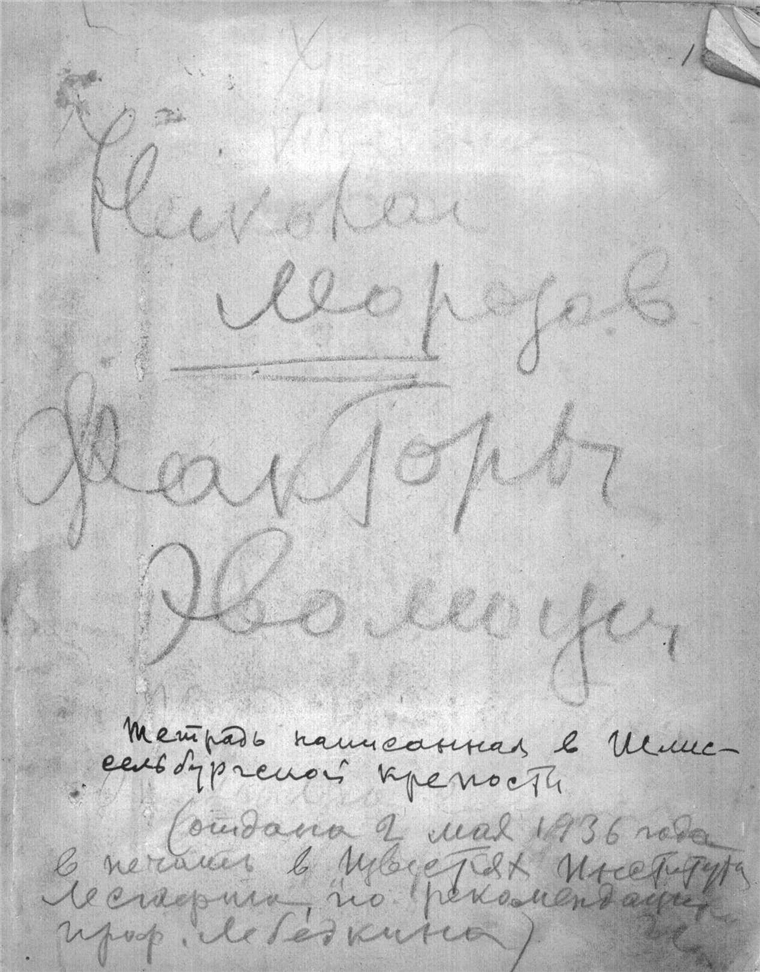 1
Николай
Морозов
Факторы
эволюции
Тетрадь написанная в Шлис-
сельбургской крепости
(отдана 2 мая 1936 года
в печать в Известиях Института
Лесгафта, по рекомендации
проф. Лебёдкина)